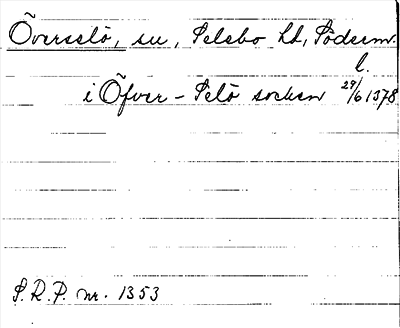 Överselö, su, Selebo hd, Söderm.
l.
i Öfver-Selö socken 29/6 1378
S.R.P. nr. 1353